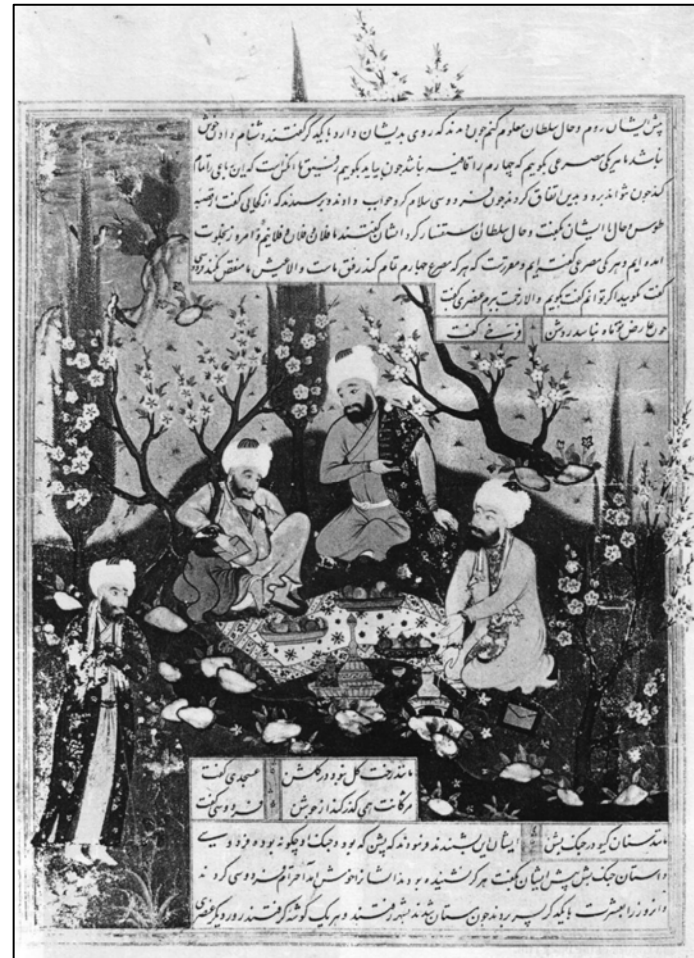 پیش ایشان روم و حال سلطان معلوم کنم چون بامدند که روی بدیشان دارد با یکدیگر گفتند و شنام داد خوش
نباشد ما هر یکی مصرعی بگوییم که چهارم را قافیه نباشد چون بیاید بگوییم رفیق ما انکس است که این رباعی را تمام
کند چون نتواند برود بدین اتفاق کردند چون فردوسی سلام کرد جواب دادند و پرسیدند که از کجایی گفت از قصبه
طوس و حال با ایشان بگفت و حال سلطان استفسار کرد ایشان گفتند ما فلان و فلان و فلانیم و امروز بخلوت
امده ایم و هر یکی مصرعی گفته ایم و مقررست که هر که مصرع چهارم تمام کند رفیق ماست و الا عیش ما منغص نکند فردوسی
گفت بگویید اگر توانم گفت بگویم و الا زحمت ببرم عنصری گفت
چون عارض تو ماه نباشد روشن فرخی گفت
مانند رخت گل نبود در گلشن عسجدی گفت
مژگانت همی گذر کند از جوشن فردوسی گفت
مانند سنان گیو در جنگ پشن ایشان این پسندیدند که پشن که بود و جنگ او چگونه بوده فردوسی
داستان جنگ پشن پیش ایشان بگفت هرگز نشنیده بودند ایشانرا خوش امد احترام فردوسی کردند
و انروز را بعشرت با یکدیگر بسر بردند چون مستان شدند بشهر رفتند و هر یک گوشه گرفتند روز دیگر عنصری